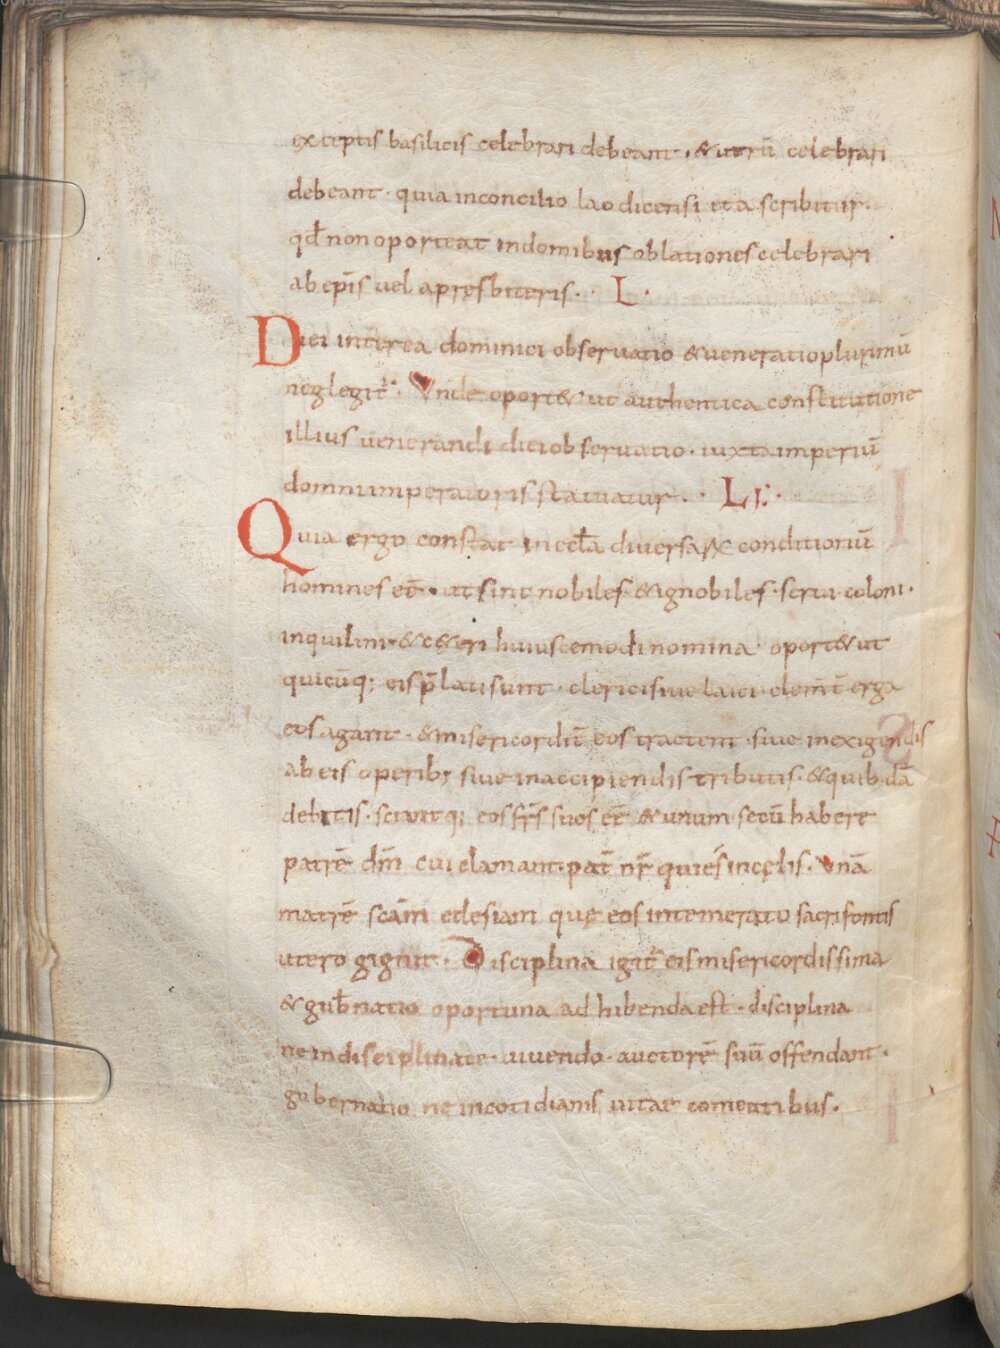 exceptis basilicis celebrari debeant · & utrū celebrari
debeant · quia inconcilio laodicensi ita scribitur ·
qđ non oporteat indomibus oblationes celebrari
ab ep̄is vel apresbiteris · · L ·
Diei interea dominici observatio & veneratio plurimū
neglegit̄ · Unde oport& ut authentica constitutione
illius venerandi diei observatio · iuxta imperiū
domni imperatoris statuatur · · LI ·
Quia ergo constat in eccła diversaꝝ conditionū
homines eē · ut sint nobiles · & ignobiles · servi · coloni ·
inquilini · & c&eri huiuscemodi nomina · oport& ut
quicūq; eis p̄lati sunt · clerici sive laici · clem̄t erga
eos agant · & misericordit̄ eos tractent · sive inexigendis
ab eis operib; sive inaccipiendis tributis · & quib;dā
debitis · sciantq; eos fr̄s suos eē & unum secū habere
patrē dm̄ cui clamant · pat̄ nr̄ qui es incęlis · Unā
matrē sc̄am eclesiam quę eos intemerato sacri fontis
utero gignit · Disciplina igit̄ eis misericordissima
& gub̄natio oportuna adhibenda est · disciplina
ne indisciplinate · vivendo · auctorē suū offendant ·
gubernatio ne incotidianis vitae comeatibus ·